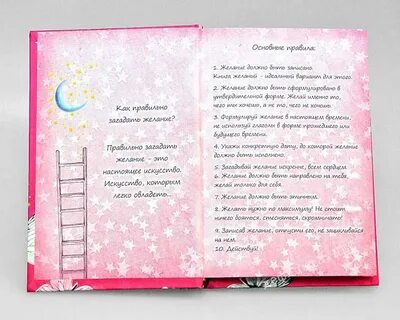 Как правильно
загадать желание?
Правильно загадать
желание - это
настоящее искусство.
Искусство, которым
легко овладеть.
Основные правила:
1. Желание должно быть записано.
Книга желаний - идеальный вариант для этого.
2. Желание должно быть сформулировано в
утвердительной форме. Желай именно то,
чего ты хочешь, а не то, чего не хочешь.
3. Формулируй желание в настоящем времени,
не используй глаголы в форме прошедшего или
будущего времени.
4. Укажи конкретную дату, до которой желание
должно быть исполнено.
5. Загадывай желание искренне, всем сердцем.
6. Желание должно быть направлено на тебя,
желай только для себя.
7. Желание должно быть этичным.
8. Желать нужно по максимуму! Не стоит
ничего бояться, стесняться, скромничать!
9. Записав желание, отпусти его, не зацикливайся
на нем.
10. Действуй!